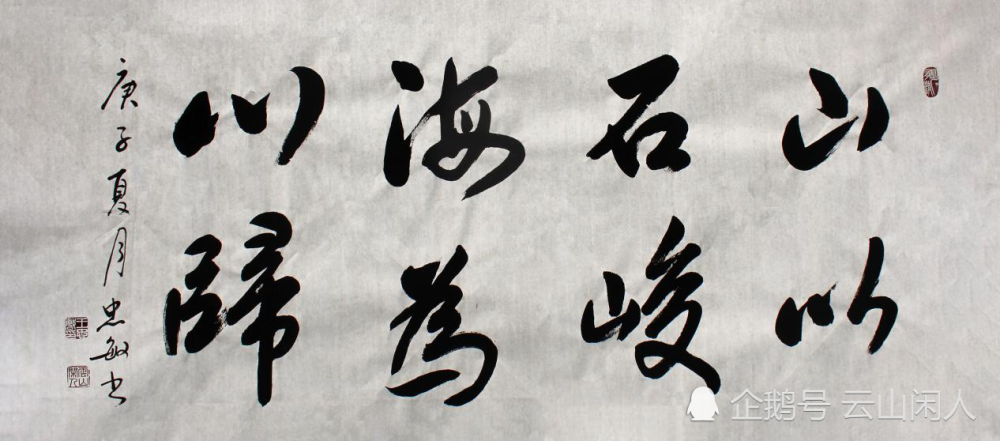 山以
石峻
海為
川歸
庚子夏月忠敏书
企鹅号 云山闲人